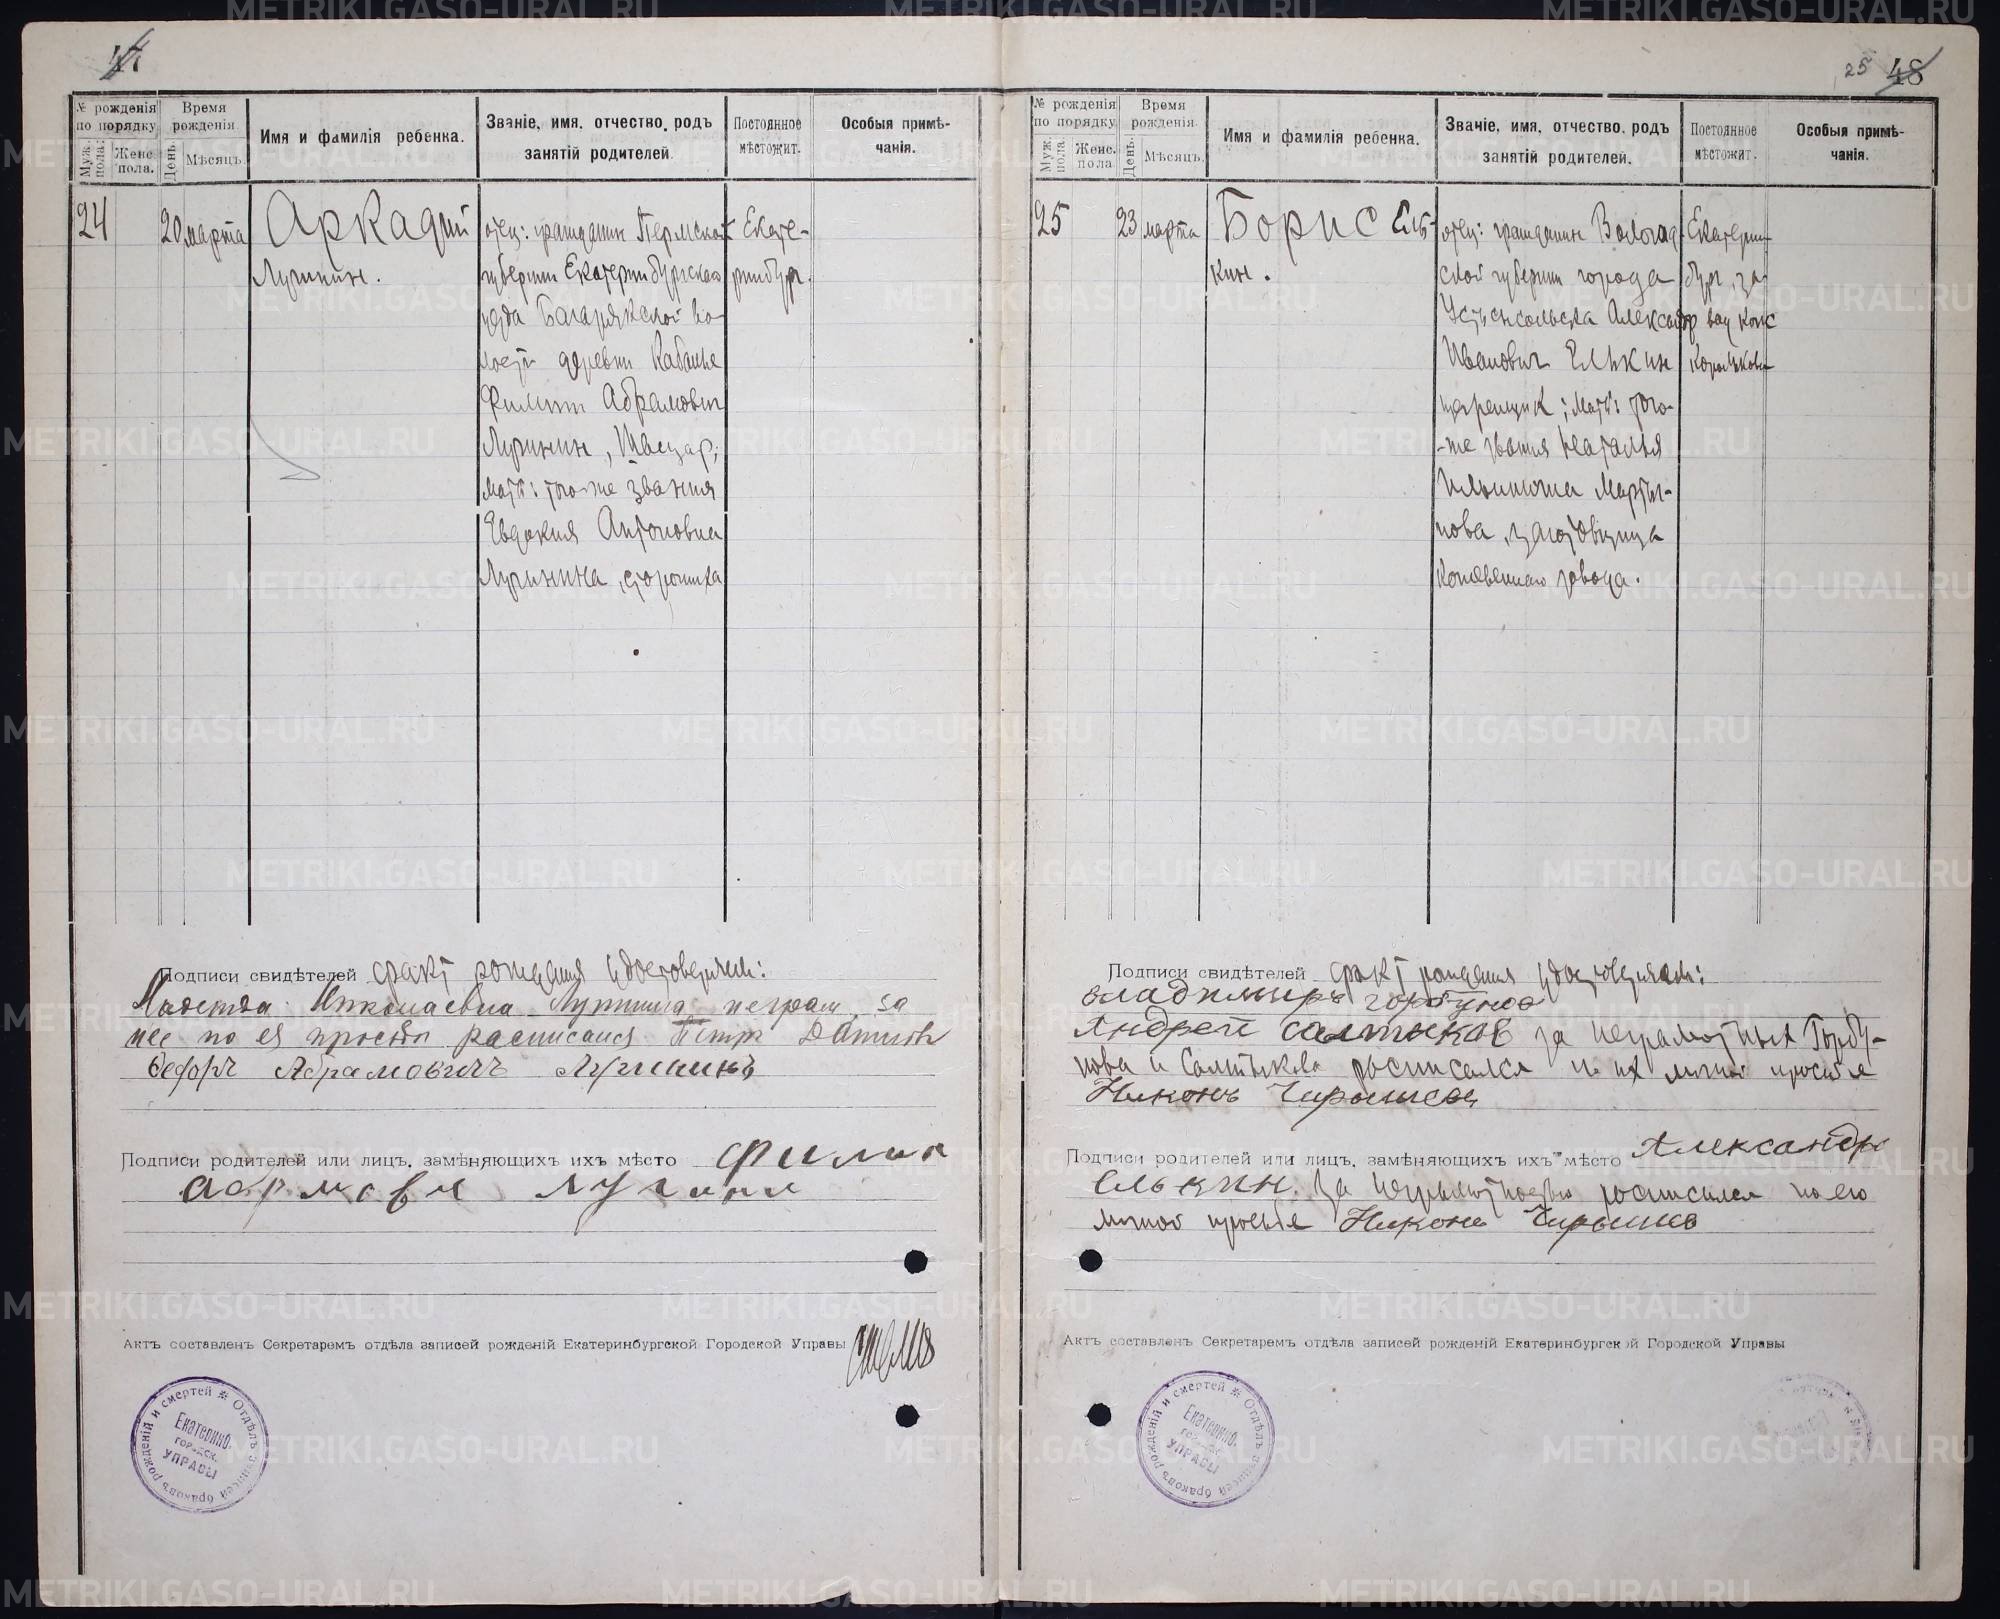 47
№ рожденія по порядку
Муж. пола.
Женс. пола.
Время рожденія.
День.
Мѣсяцъ.
Имя и фамилія ребенка.
Званіе, имя, отчество, родъ
занятій родителей.
Постоянное
мѣстожит.
Особыя примѣ-
чанія.
24
20 марта
Аркадий
Лугинин.
отец: гражданин Пермской
губернии Екатеринбургскаго
уезда Багарякской во-
лости деревни Кабанье
Филипп Абрамович
Лугинин, Швецар;
мать: того-же звания
Евдокия Антоновна
Лугинина, сторожиха
Екате-
ринбург.
Подписи свидѣтелей факт рождения удостоверяем:
Николаевна неграм, за
нее по ея просьбе расписался Петр
Федоръ Абрамовичъ Лугининъ
Подписи родителей или лицъ, замѣняющихъ ихъ мѣсто Филип
Актъ составленъ Секретаремъ отдѣла записей рожденій Екатеринбургской Городской Управы
Отдѣлъ записей браковъ рожденій и смертей
Екатеринб.
городск.
УПРАВЫ
25 48
№ рожденія по порядку
Муж. пола.
Женс. пола.
Время рожденія.
День.
Мѣсяцъ.
Имя и фамилія ребенка.
Званіе, имя, отчество, родъ
занятій родителей.
Постоянное
мѣстожит.
Особыя примѣ-
чанія.
25
23 марта
Борис Ель-
кин.
отец: гражданин Вологод-
ской губернии города
Устьсысольска Александр
Иванович Елькин
мать: того-
-же звания Наталья
Ильинишна Марты-
нова,
завода.
Екатерин-
бург, за-
Подписи свидѣтелей факт рождения удостоверяем:
Владимиръ Горбунов
Андрей Салтыков за неграмотных Горбу-
нова и Салтыкова расписался по их личной просьбе
Никонъ Чирышев
Подписи родителей или лицъ, замѣняющихъ ихъ мѣсто Александръ
Елькин. За неграмотностью расписался по его
личной просьбе Никонъ Чирышев
Актъ составленъ Секретаремъ отдѣла записей рожденій Екатеринбургской Городской Управы
Отдѣлъ записей браковъ рожденій и смертей
Екатеринб.
городск.
УПРАВЫ
METRIKI.GASO-URAL.RU